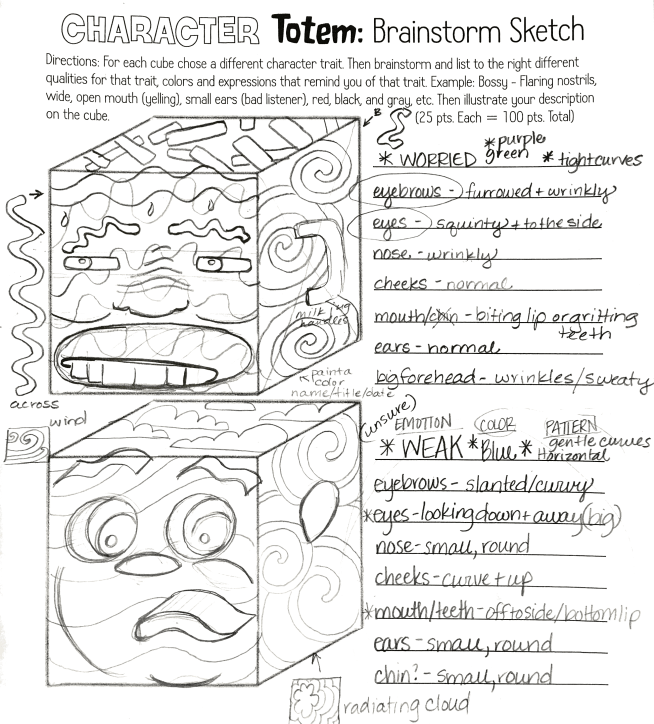 CHARACTER Totem: Brainstorm Sketch
Directions: For each cube chose a different character trait. Then brainstorm and list to the right different
qualities for that trait, colors and expressions that remind you of that trait. Example: Bossy - Flaring nostrils,
wide, open mouth (yelling), small ears (bad listener), red, black, and gray, etc. Then illustrate your description
on the cube.
(25 pts. Each = 100 pts. Total)
* purple
green
* WORRIED
* tight curves
eyebrows - furrowed + wrinkly
eyes - squinty + to the side
nose - wrinkly
cheeks - normal
mouth/chin - biting lip or gritting
teeth
ears - normal
big forehead - wrinkles/sweaty
milk jug
handers
paint a
color
name/title/date
across
wind
(unsure)
EMOTION COLOR PATTERN
* WEAK * Blue * gentle curves
Horizontal
eyebrows - slanted/curvy
* eyes - looking down + away (big)
nose - small, round
cheeks - curve + up
* mouth/teeth - off to side/bottom lip
ears - small, round
chin? - small, round
radiating cloud